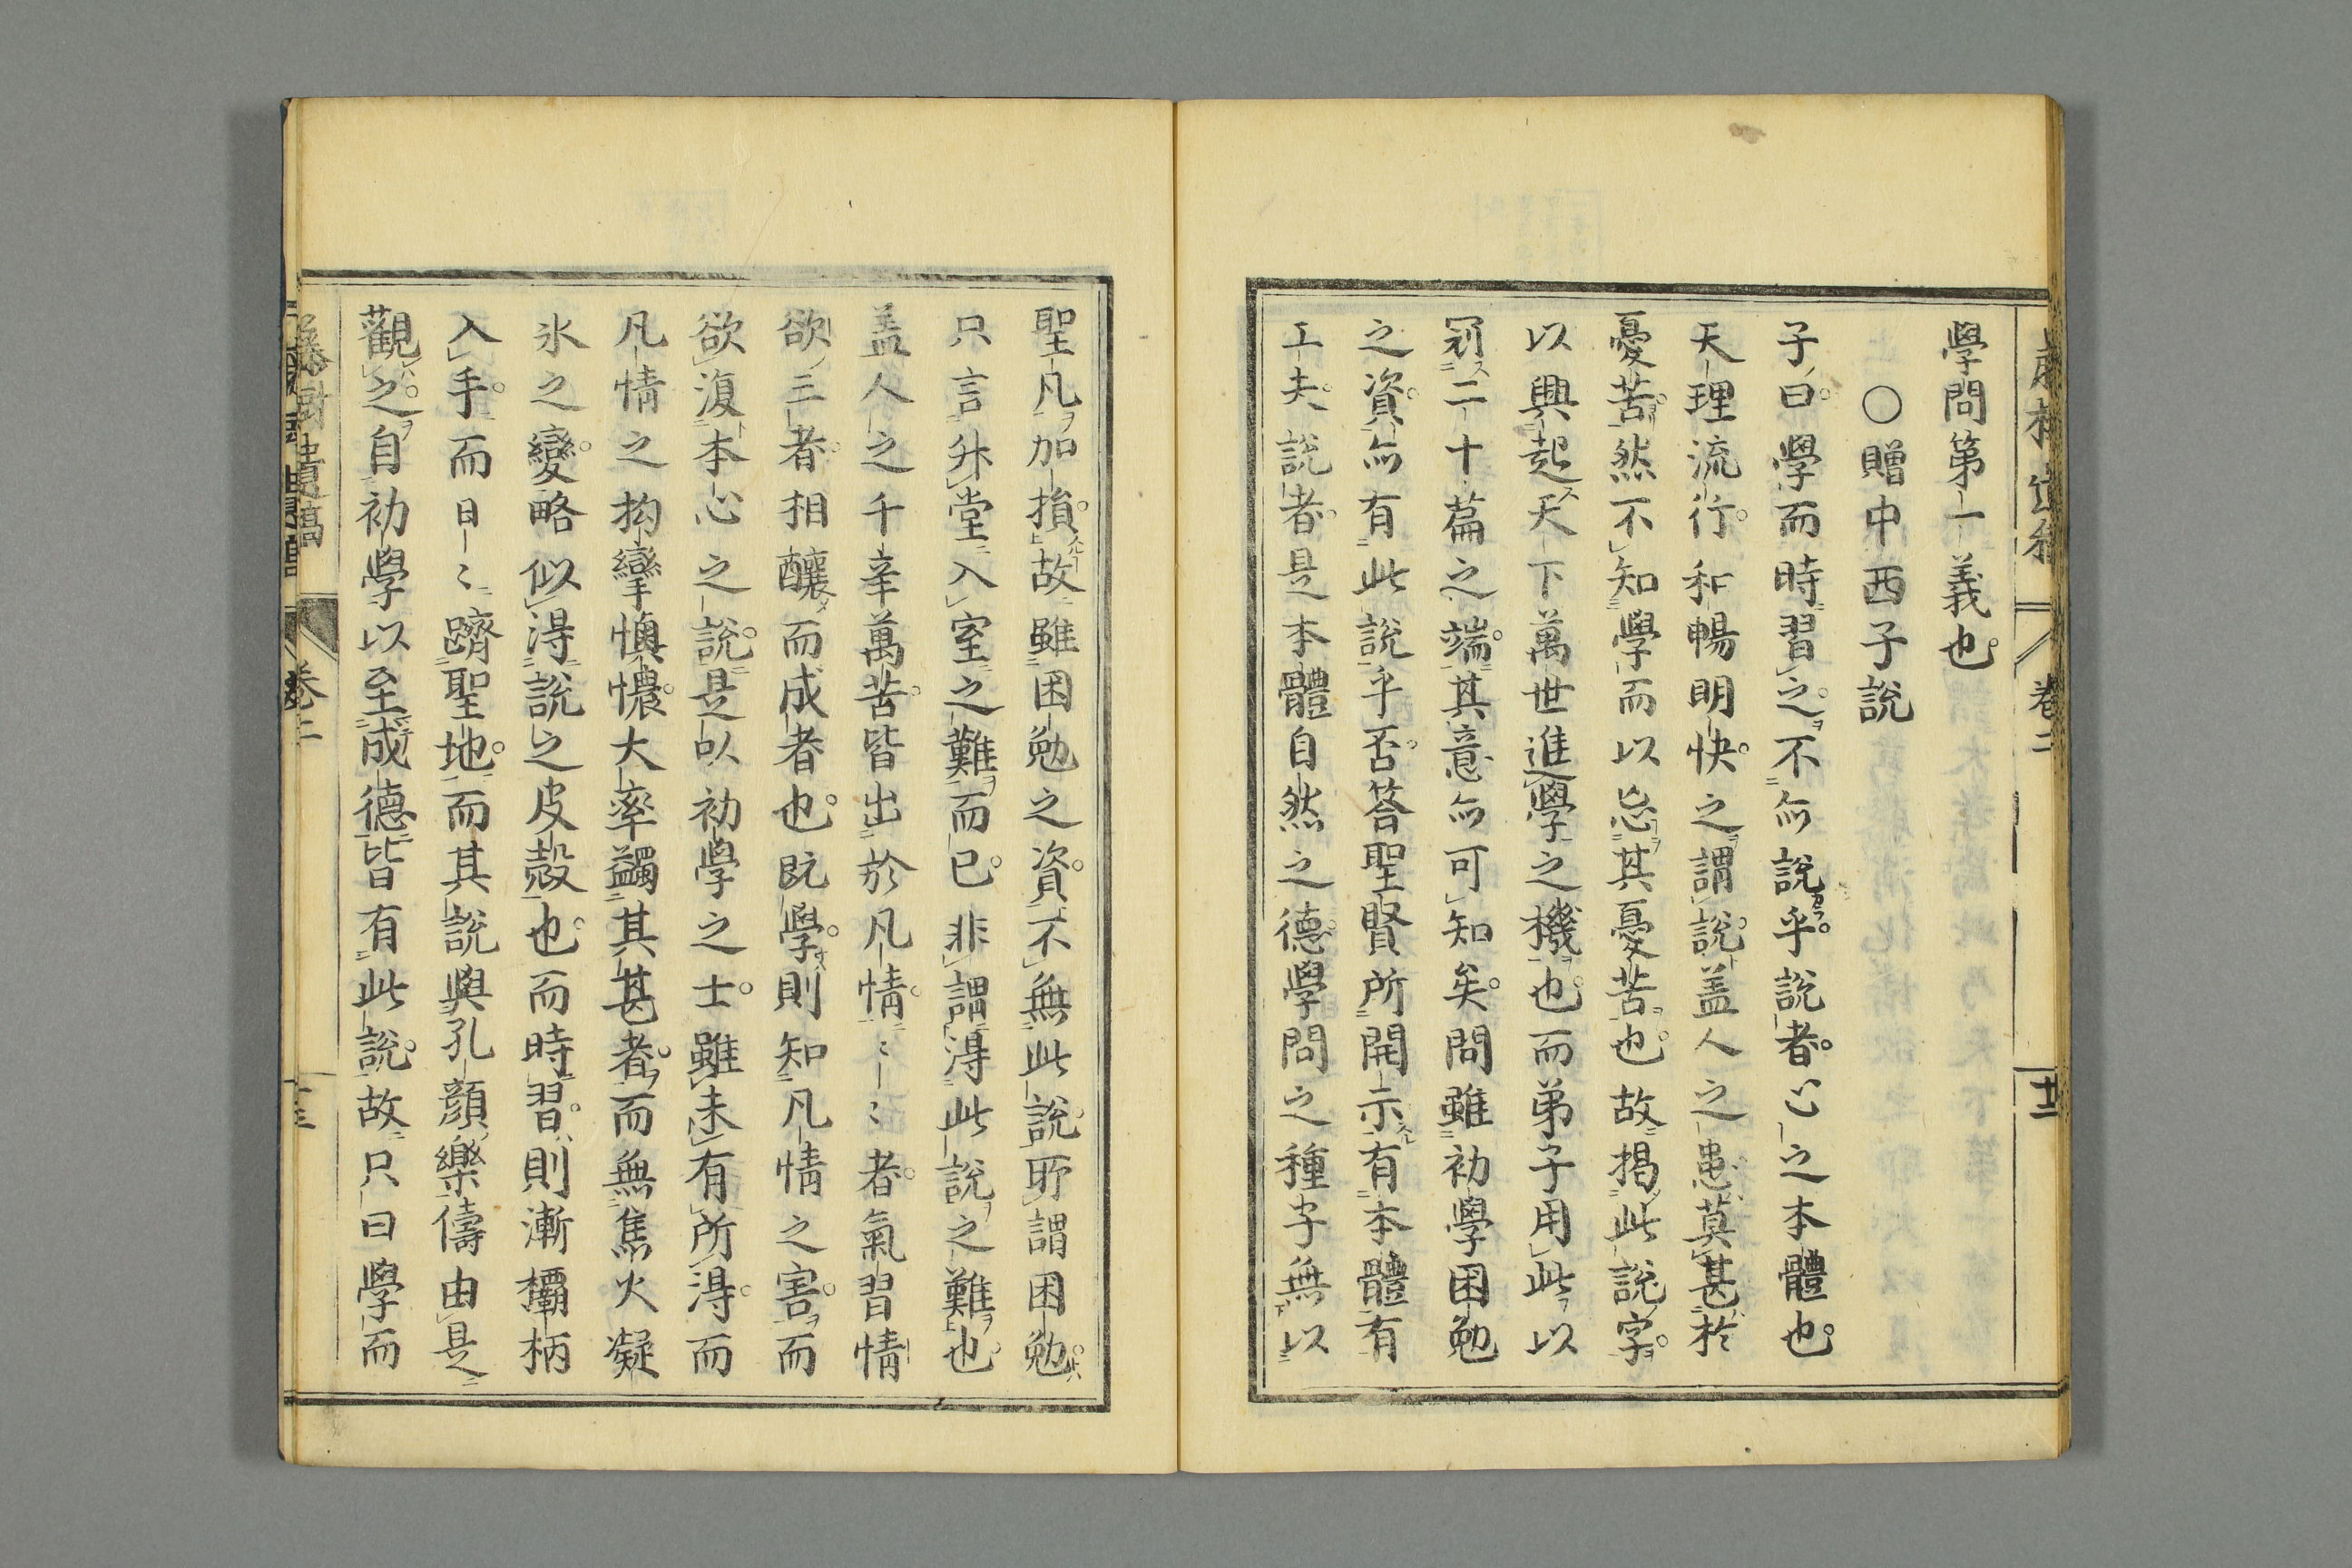 學問第一義也
○贈中西子說
子曰學而時習之不亦說乎說者心之本體也
天理流行和暢明快之謂說盖人之患莫甚於
憂苦然不知學而以忘其憂苦也故揭此說字
以興起天下萬世進學之機也而弟子用此以
冠二十篇之端其意亦可知矣問雖初學困勉
之資亦有此說乎否答聖賢所開示有本體有
工夫說者是本體自然之德學問之種子無以
卷二
十二
聖凡加損故雖困勉之資不無此說耶謂困勉
只言升堂入室之難而已非謂得此說之難也
盖人之千辛萬苦皆出於凡情〻〻者氣習情
欲三者相釀而成者也既學則知凡情之害而
欲復本心之說是以初學之士雖未有所得而
凡情之拘攣懊憹大率蠲其甚者而無焦火凝
氷之變略似得說之皮殼也而時習則漸欛柄
入手而日〻躋聖地而其說與孔顔樂儔由是
觀之自初學以至成德皆有此說故只曰學而
藤樹遺稿
卷二
十三